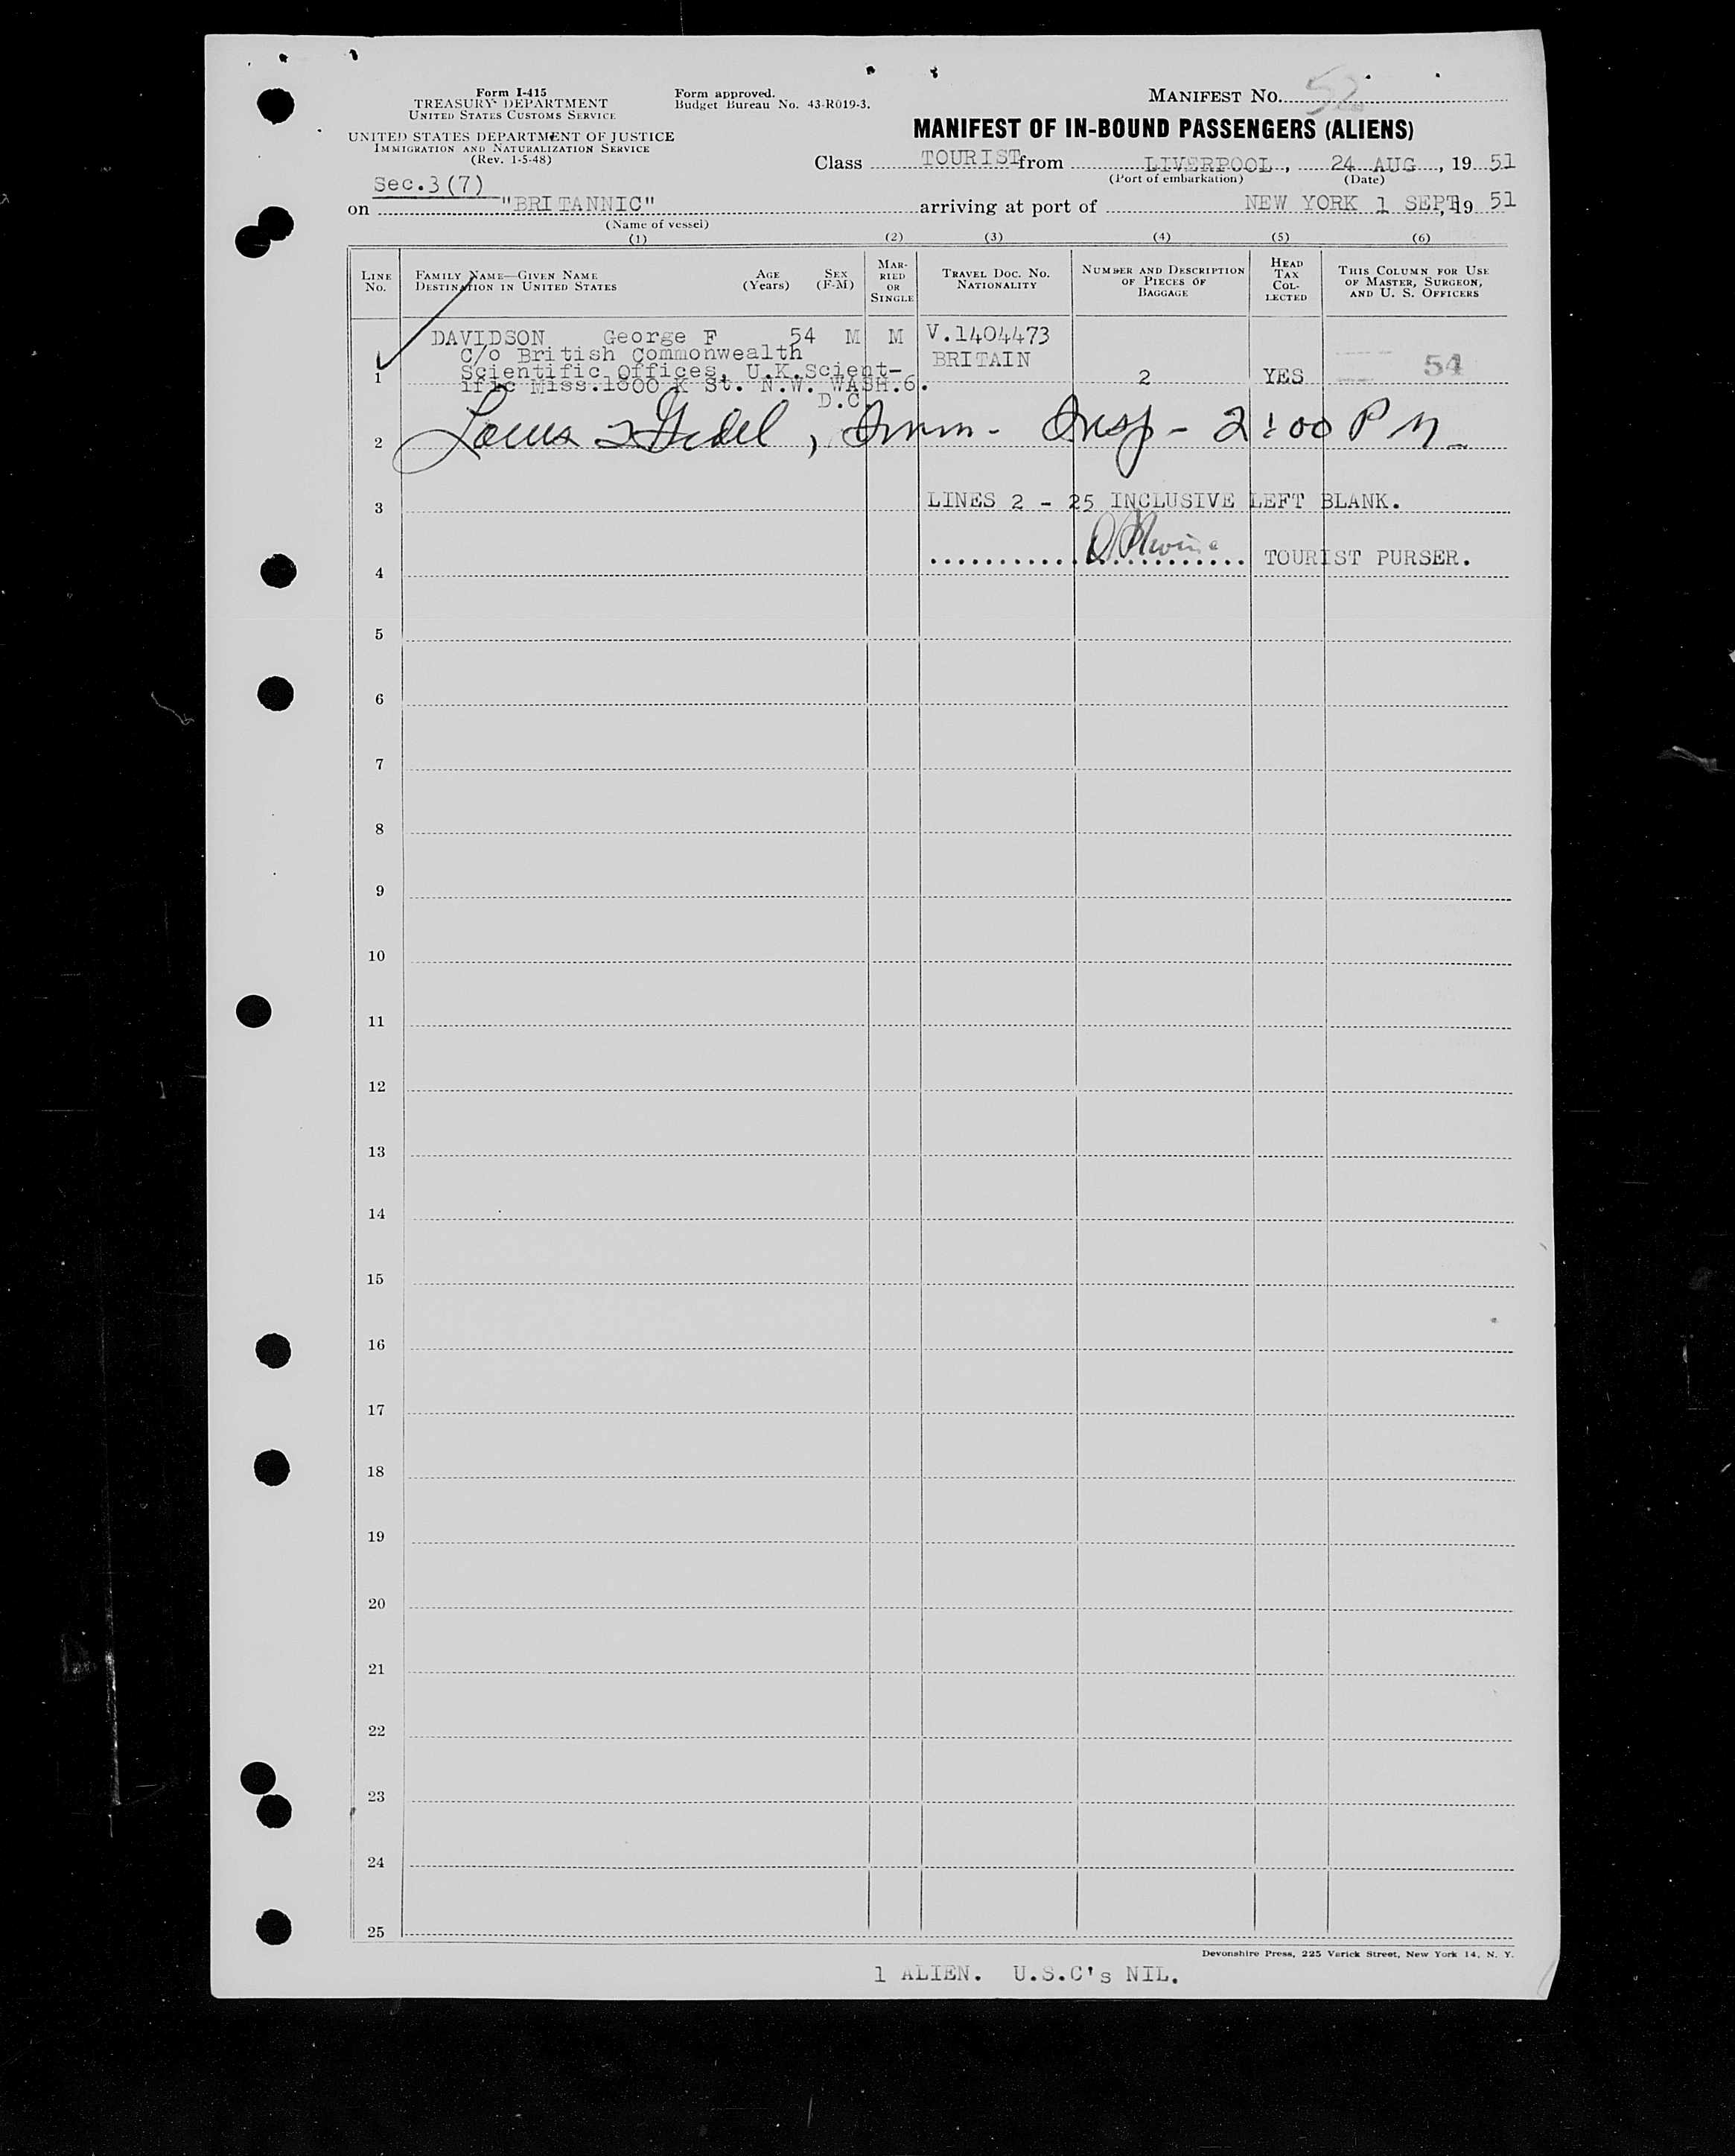 Form I-415
TREASURY DEPARTMENT
UNITED STATES CUSTOMS SERVICE
UNITED STATES DEPARTMENT OF JUSTICE
IMMIGRATION AND NATURALIZATION SERVICE
(Rev. 1-5-48)
Form approved.
Budget Bureau No. 43-R019-3.
MANIFEST NO. 52
MANIFEST OF IN-BOUND PASSENGERS (ALIENS)
Class TOURIST from LIVERPOOL, 24 AUG, 19 51
(Port of embarkation) (Date)
Sec.3(7)
on "BRITANNIC" arriving at port of NEW YORK 1 SEPT, 19 51
(Name of vessel)
(1) (2) (3) (4) (5) (6)
LINE NO.
FAMILY NAME—GIVEN NAME
DESTINATION IN UNITED STATES
AGE (Years)
SEX (F-M)
MARRIED OR SINGLE
TRAVEL DOC. NO. NATIONALITY
NUMBER AND DESCRIPTION OF PIECES OF BAGGAGE
HEAD TAX COLLECTED
THIS COLUMN FOR USE OF MASTER, SURGEON, AND U. S. OFFICERS
DAVIDSON George F 54 M M V.1404473
C/o British Commonwealth BRITAIN
Scientific Offices, U.K.Scient-
1 ific Miss.1800 K St. N.W. WASH.6. 2 YES 54
D.C
2 Louis , Imm- Insp- 2:00 PM
3 LINES 2 - 25 INCLUSIVE LEFT BLANK.
4 TOURIST PURSER.
5
6
7
8
9
10
11
12
13
14
15
16
17
18
19
20
21
22
23
24
25
Devonshire Press, 225 Varick Street, New York 14, N. Y.
1 ALIEN. U.S.C's NIL.